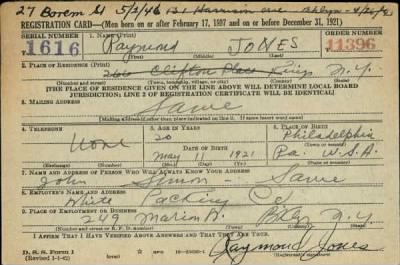 27 Boerem St 5/2/46 131 Harrison ave Bklyn - 4/20/4
REGISTRATION CARD—(Men born on or after February 17, 1897 and on or before December 31, 1921)
SERIAL NUMBER 1. NAME (Print) ORDER NUMBER
1616 Raymond JONES 11396
2. PLACE OF RESIDENCE (Print)
266 Clifton Place Kings N.Y.
(Number and street) (Town, township, village, or city) (County) (State)
[THE PLACE OF RESIDENCE GIVEN ON THE LINE ABOVE WILL DETERMINE LOCAL BOARD
JURISDICTION; LINE 2 OF REGISTRATION CERTIFICATE WILL BE IDENTICAL]
3. MAILING ADDRESS
Same
[Mailing address if other than place indicated on line 2. If same insert word same]
4. TELEPHONE 5. AGE IN YEARS 6. PLACE OF BIRTH
none 20 Philadelphia
DATE OF BIRTH (Town or county)
May 11 1921 Pa. U.S.A.
(Exchange) (Number) (Mo.) (Day) (Yr.) (State or country)
7. NAME AND ADDRESS OF PERSON WHO WILL ALWAYS KNOW YOUR ADDRESS
John Simon - Same
8. EMPLOYER'S NAME AND ADDRESS
White Packing Co
9. PLACE OF EMPLOYMENT OR BUSINESS
249 Marion St. Bklyn N.Y.
(Number and street or R. F. D. number) (Town) (County) (State)
I AFFIRM THAT I HAVE VERIFIED ABOVE ANSWERS AND THAT THEY ARE TRUE.
D. S. S. Form 1
(Revised 1-1-42) (over) Raymond Jones
(Registrant's signature)